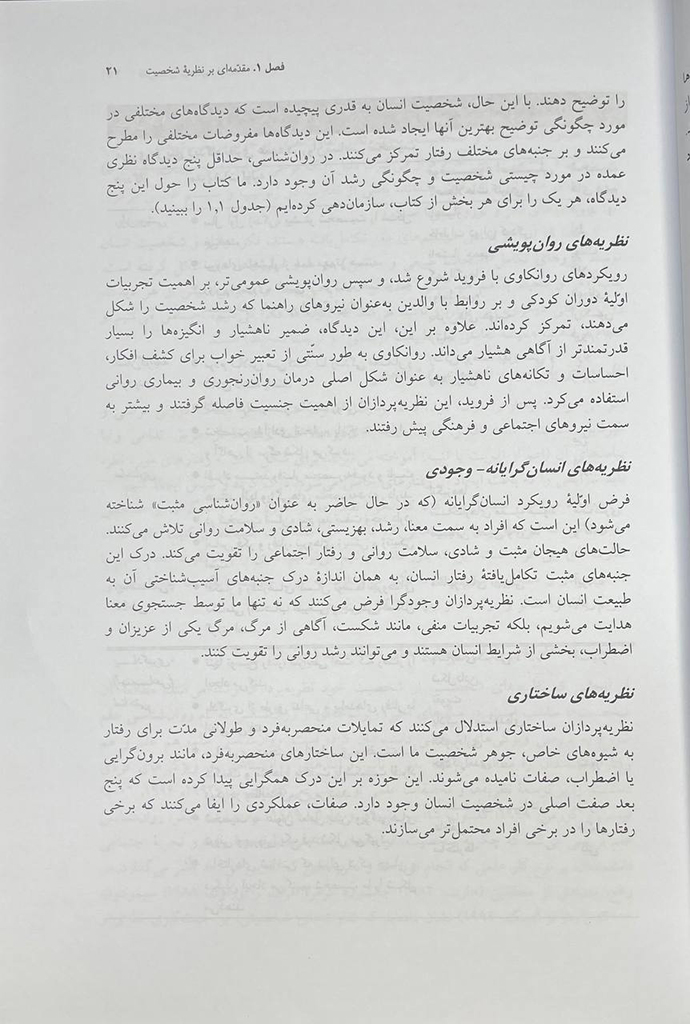 فصل ۱. مقدّمه‌ای بر نظریهٔ شخصیت ۲۱
را توضیح دهند. با این حال، شخصیت انسان به قدری پیچیده است که دیدگاه‌های مختلفی در
مورد چگونگی توضیح بهترین آنها ایجاد شده است. این دیدگاه‌ها مفروضات مختلفی را مطرح
می‌کنند و بر جنبه‌های مختلف رفتار تمرکز می‌کنند. در روان‌شناسی، حداقل پنج دیدگاه نظری
عمده در مورد چیستی شخصیت و چگونگی رشد آن وجود دارد. ما کتاب را حول این پنج
دیدگاه، هر یک را برای هر بخش از کتاب، سازمان‌دهی کرده‌ایم (جدول ۱,۱ را ببینید).
نظریه‌های روان‌پویشی
رویکردهای روانکاوی با فروید شروع شد، و سپس روان‌پویشی عمومی‌تر، بر اهمیت تجربیات
اوّلیهٔ دوران کودکی و بر روابط با والدین به‌عنوان نیروهای راهنما که رشد شخصیت را شکل
می‌دهند، تمرکز کرده‌اند. علاوه بر این، این دیدگاه، ضمیر ناهشیار و انگیزه‌ها را بسیار
قدرتمندتر از آگاهی هشیار می‌داند. روانکاوی به طور سنّتی از تعبیر خواب برای کشف افکار،
احساسات و تکانه‌های ناهشیار به عنوان شکل اصلی درمان روان‌رنجوری و بیماری روانی
استفاده می‌کرد. پس از فروید، این نظریه‌پردازان از اهمیت جنسیت فاصله گرفتند و بیشتر به
سمت نیروهای اجتماعی و فرهنگی پیش رفتند.
نظریه‌های انسان‌گرایانه- وجودی
فرض اوّلیهٔ رویکرد انسان‌گرایانه (که در حال حاضر به عنوان «روان‌شناسی مثبت» شناخته
می‌شود) این است که افراد به سمت معنا، رشد، بهزیستی، شادی و سلامت روانی تلاش می‌کنند.
حالت‌های هیجان مثبت و شادی، سلامت روانی و رفتار اجتماعی را تقویت می‌کند. درک این
جنبه‌های مثبت تکامل‌یافتهٔ رفتار انسان، به همان اندازهٔ درک جنبه‌های آسیب‌شناختی آن به
طبیعت انسان است. نظریه‌پردازان وجودگرا فرض می‌کنند که نه تنها ما توسط جستجوی معنا
هدایت می‌شویم، بلکه تجربیات منفی، مانند شکست، آگاهی از مرگ، مرگ یکی از عزیزان و
اضطراب، بخشی از شرایط انسان هستند و می‌توانند رشد روانی را تقویت کنند.
نظریه‌های ساختاری
نظریه‌پردازان ساختاری استدلال می‌کنند که تمایلات منحصربه‌فرد و طولانی مدّت برای رفتار
به شیوه‌های خاص، جوهر شخصیت ما است. این ساختارهای منحصربه‌فرد، مانند برون‌گرایی
یا اضطراب، صفات نامیده می‌شوند. این حوزه بر این درک همگرایی پیدا کرده است که پنج
بعد صفت اصلی در شخصیت انسان وجود دارد. صفات، عملکردی را ایفا می‌کنند که برخی
رفتارها را در برخی افراد محتمل‌تر می‌سازند.